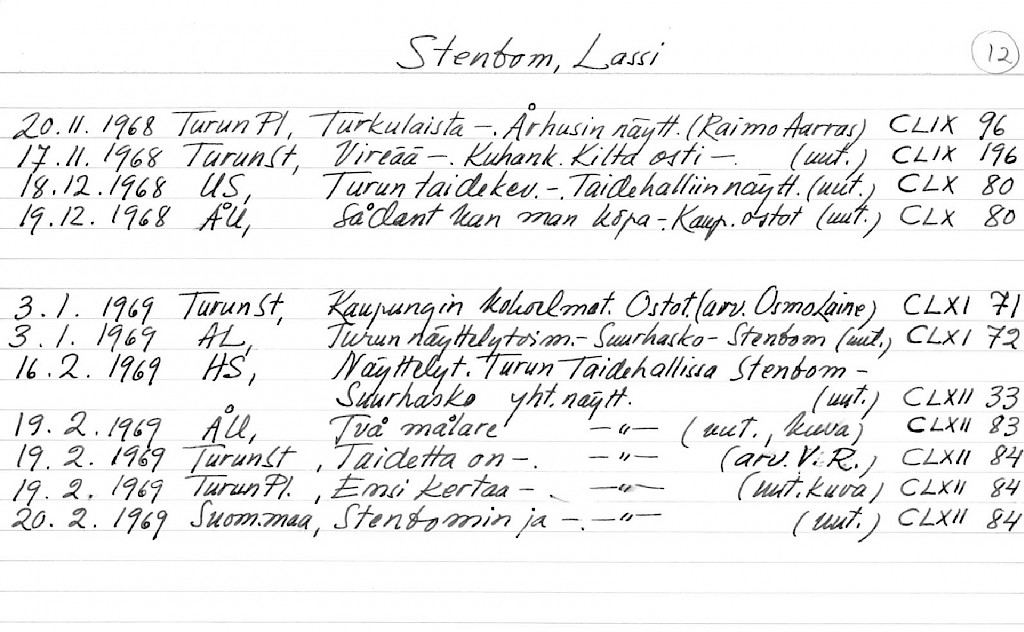 Stenbom, Lassi 12
20.11.1968 Turun Pl, Turkulaista -. Århusin näytt. (Raimo Aarras) CLIX 96
17.11.1968 TurunSt, Vireää -. Kuhank. Kilta osti -. (uut.) CLIX 196
18.12.1968 US, Turun taidekev. -. Taidehalliin näytt. (uut.) CLX 80
19.12.1968 ÅU, Sådant kan man köpa -. Kaup. ostot (uut.) CLX 80
3.1.1969 TurunSt, Kaupungin kokoelmat. Ostot. (arv. Osmo Laine) CLXI 71
3.1.1969 AL, Turun näyttelytoim. - Suurhasko - Stenbom (uut.) CLXI 72
16.2.1969 HS, Näyttelyt. Turun Taidehallissa Stenbom -
Suurhasko yht. näytt. (uut.) CLXII 33
19.2.1969 ÅU, Två målare -"- (uut., kuva) CLXII 83
19.2.1969 TurunSt, Taidetta on -. -"- (arv. V.R.) CLXII 84
19.2.1969 Turun Pl., Ensi kertaa -. -"- (uut. kuva) CLXII 84
20.2.1969 Suom.maa, Stenbomin ja -. -"- (uut.) CLXII 84